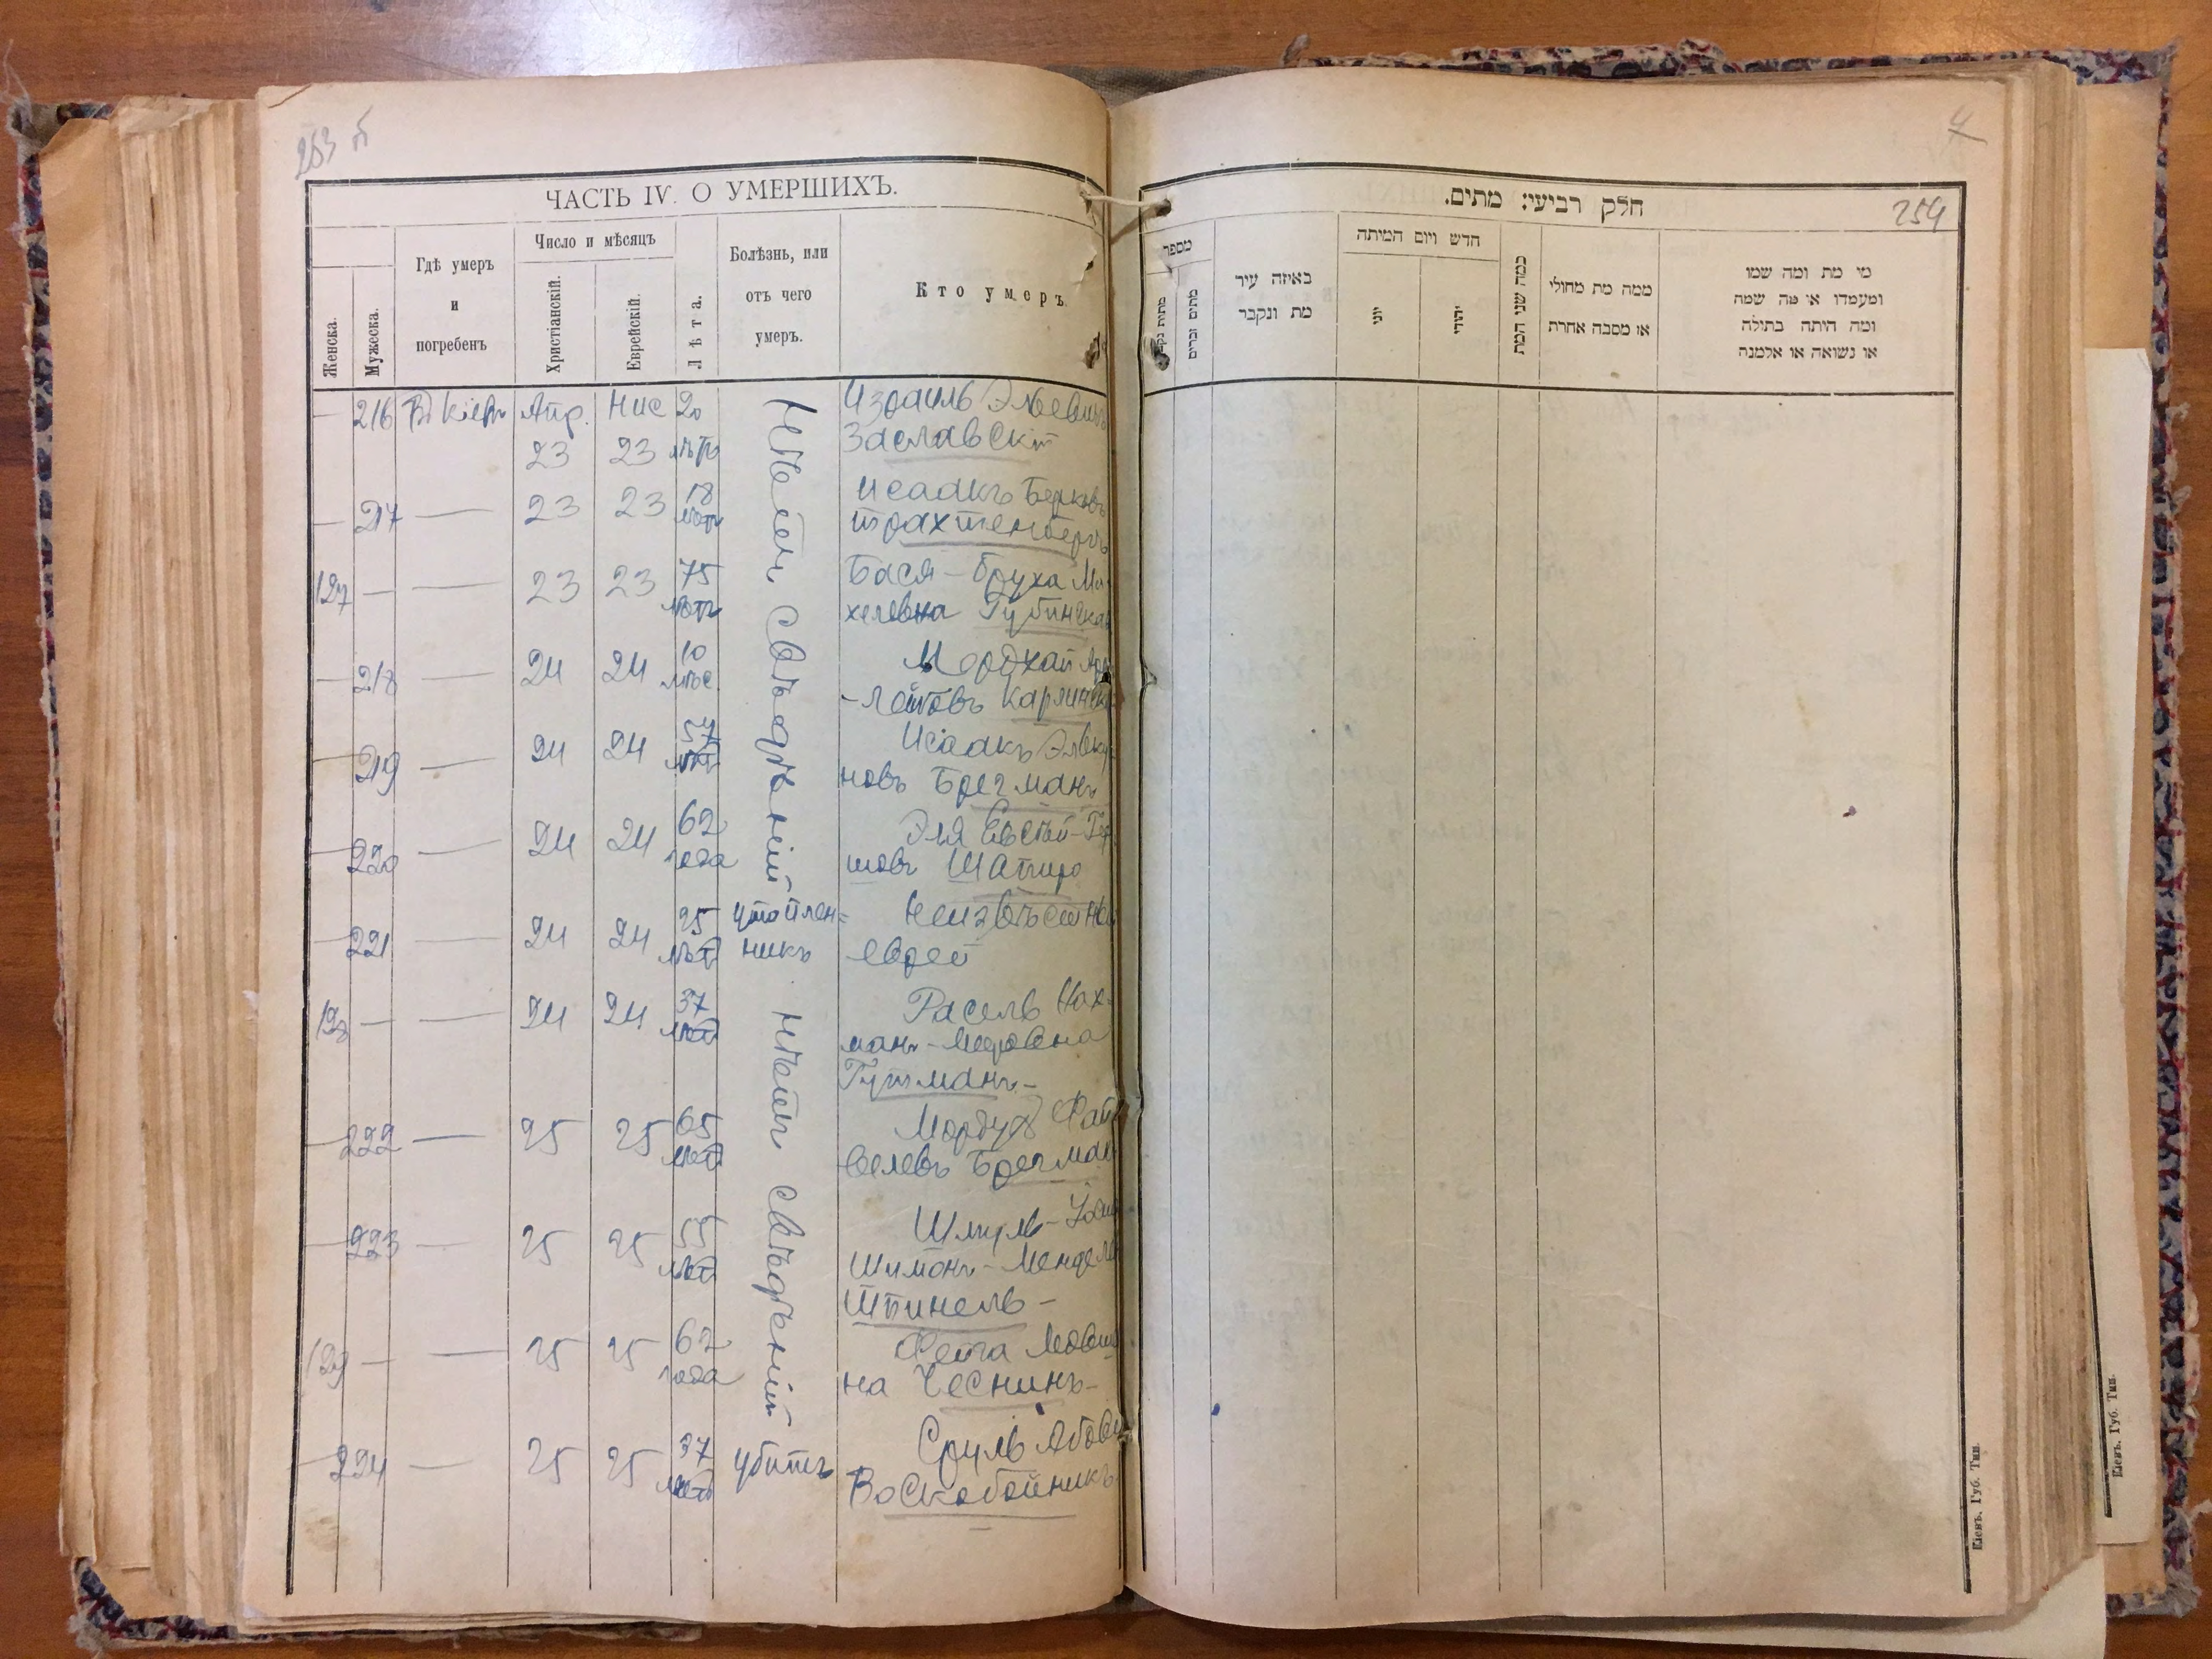 253 б
ЧАСТЬ IV. О УМЕРШИХЪ.
Женска.
Мужеска.
Гдѣ умеръ
и
погребенъ
Число и мѣсяцъ
Христіанскій.
Еврейскій.
Лѣта.
Болѣзнь, или
отъ чего
умеръ.
Кто умеръ.
— 216 Въ Кіевѣ Апр. Нис 20 Израиль
23 23 лѣтъ Заславскій
Нѣтъ свѣдѣній
— 217 — 23 23 18 Исаакъ Берковъ
лѣтъ Трахтенбергъ
127 — — 23 23 75 Бася-Бруха
лѣтъ хелевна Губинская
— 218 — 24 24 10 Мордхай
мѣс.
— 219 — 24 24 57 Исаакъ
лѣтъ новъ Брегманъ
— 220 — 24 24 62 Эля
года шовъ Шапиро
— 221 — 24 24 25 утоплен= Неизвѣстный
лѣтъ никъ еврей
128 — — 24 24 37 Расель Нах-
лѣтъ манъ-Меровна
Гутманъ-
нѣтъ свѣдѣній
— 222 — 25 25 65 Мордух Фай
лѣтъ велевъ Брегман
— 223 — 25 25 55 Шмуль-
лѣтъ Шимонъ-Мендел
Шпинель-
129 — — 25 25 62 Фейга Мовшо
года на Чеснинъ-
— 224 — 25 25 37 убитъ Сруль Абовъ
лѣтъ Воскобойникъ
4
254
חלק רביעי: מתים.
מספר
מתות נקבות
מתים זכרים
באיזה עיר
מת ונקבר
חדש ויום המיתה
יוני
יהודי
כמה שני המת
ממה מת מחולי
או מסבה אחרת
מי מת ומה שמו
ומעמדו או מה שמה
ומה היתה בתולה
או נשואה או אלמנה
Кіевъ. Губ. Тип.
Кіевъ. Губ. Тип.